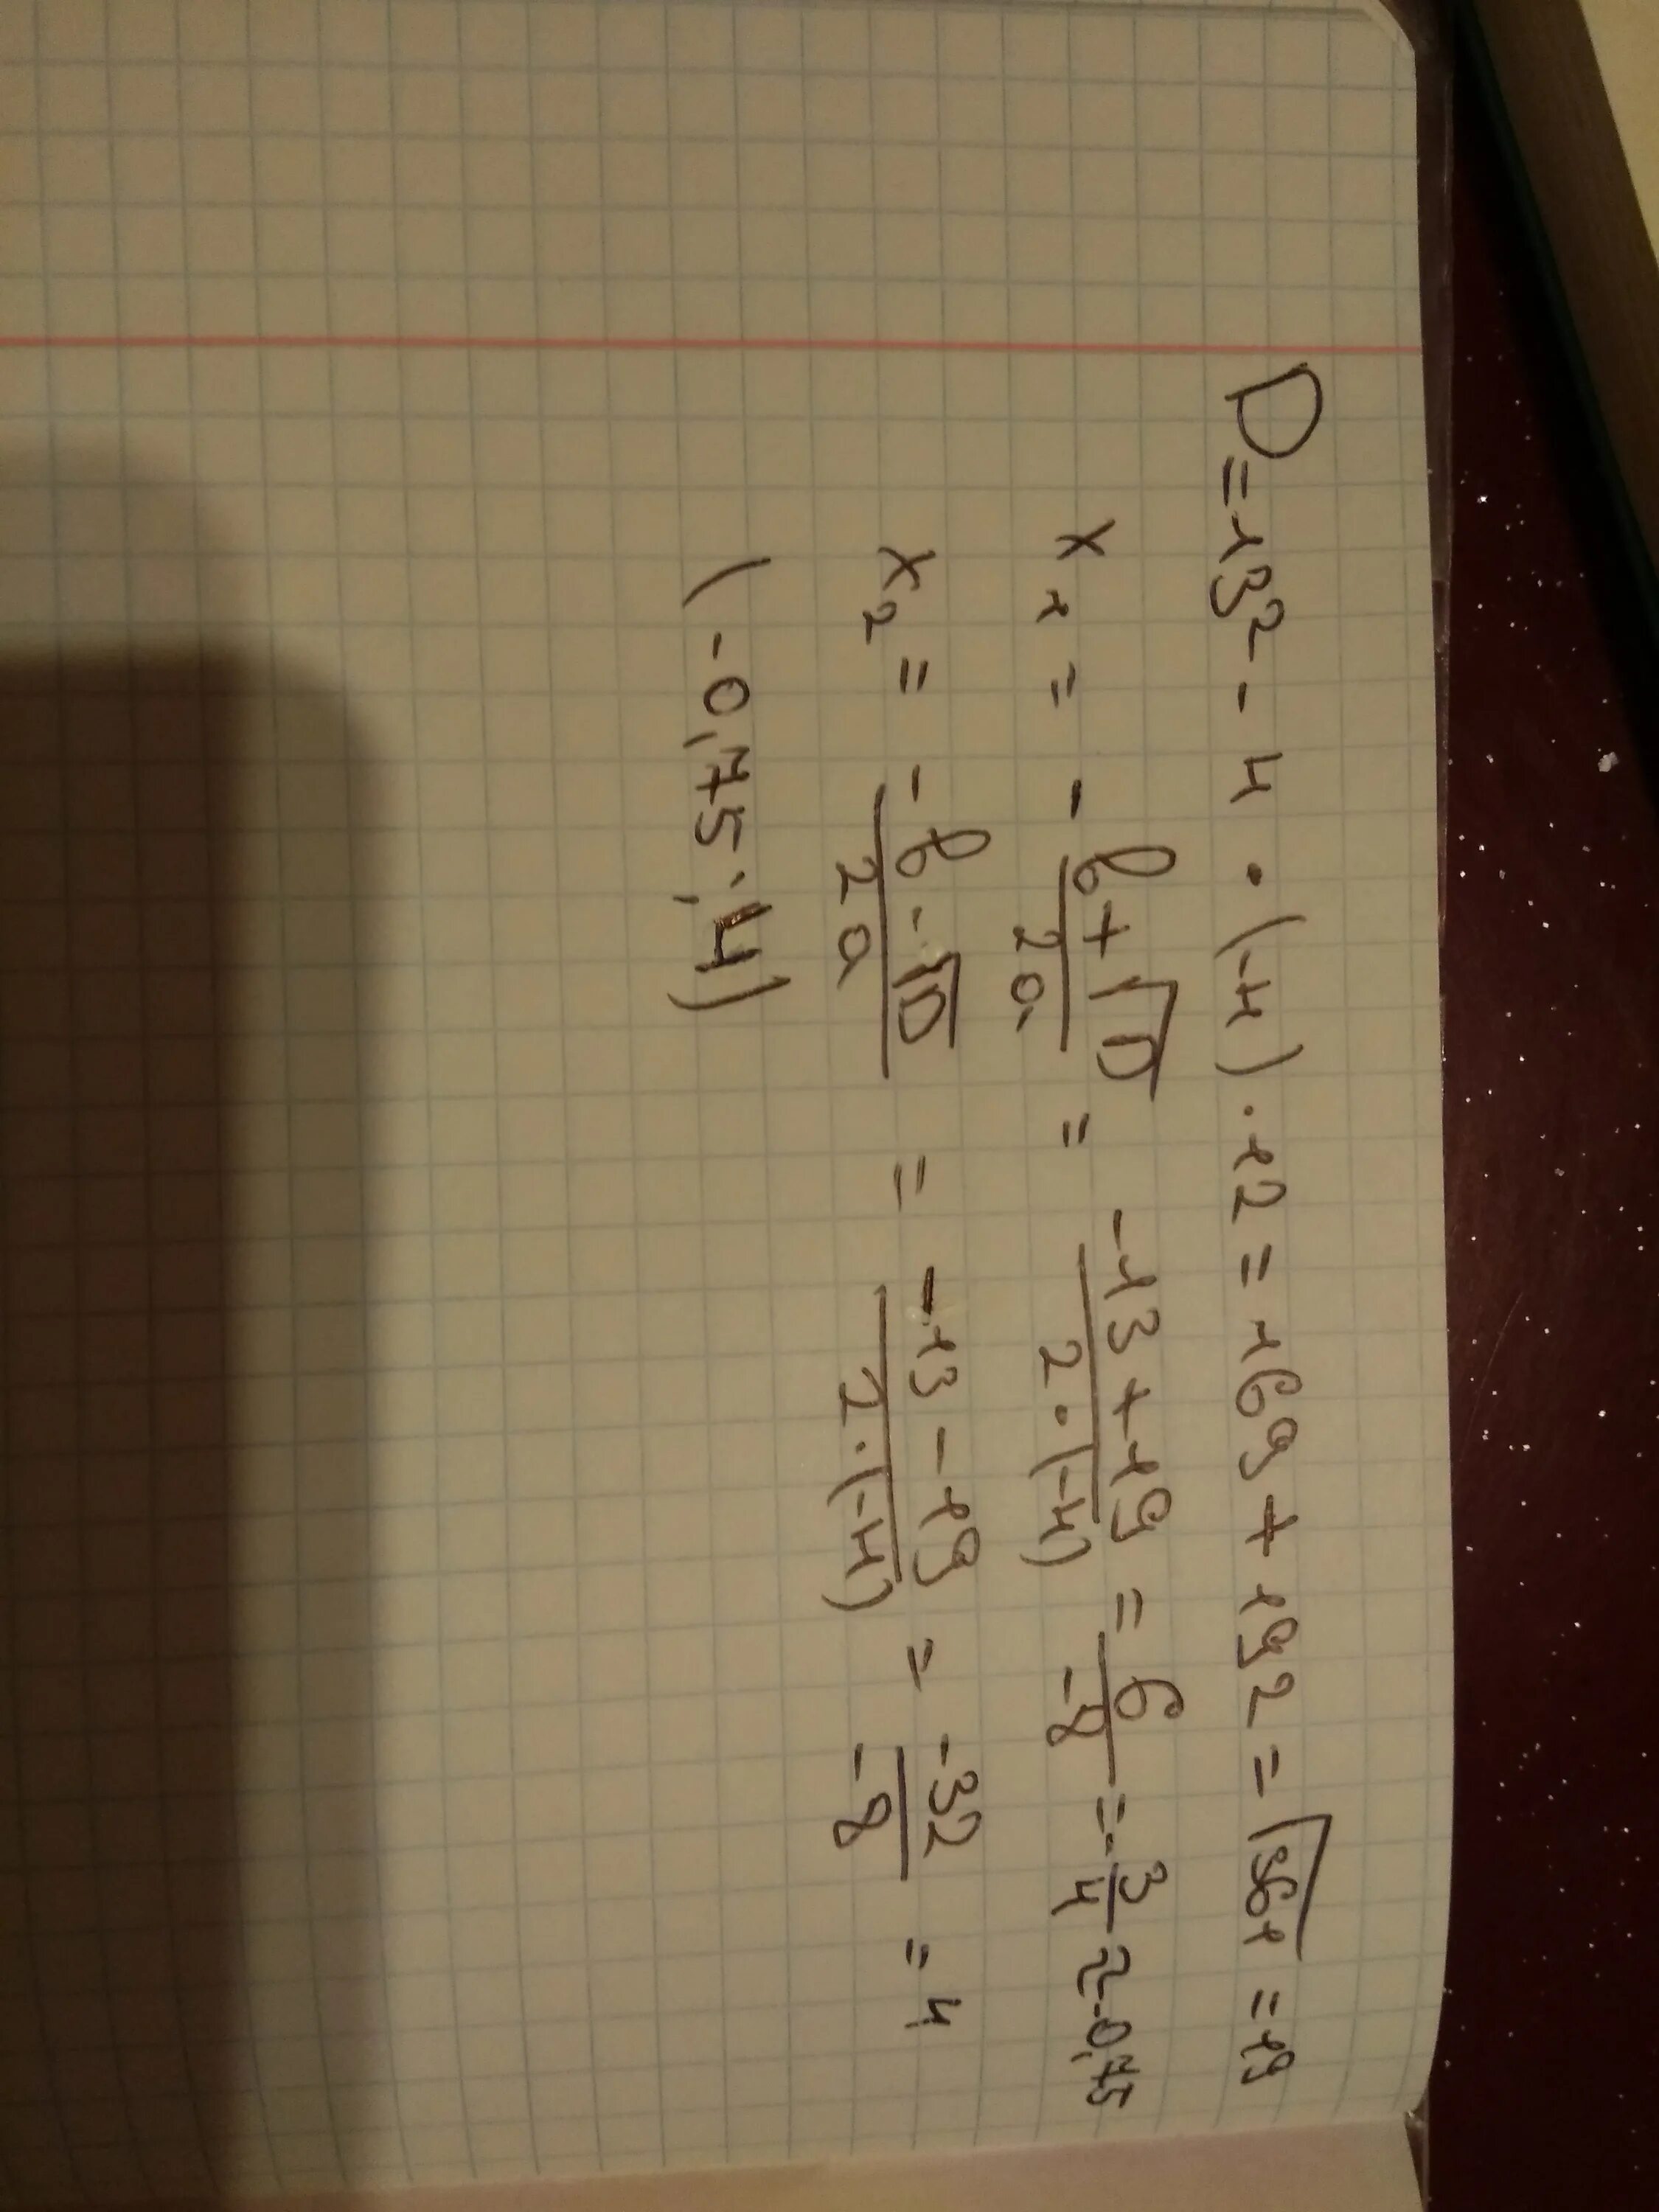 D = 13² - 4 · (-4) · 12 = 169 + 192 = √361 = 19
x₁ = -b + √D / 2a = -13 + 19 / 2 · (-4) = 6 / -8 = - 3/4 ≈ -0,75
x₂ = -b - √D / 2a = -13 - 19 / 2 · (-4) = -32 / -8 = 4
(-0,75 ; 4)